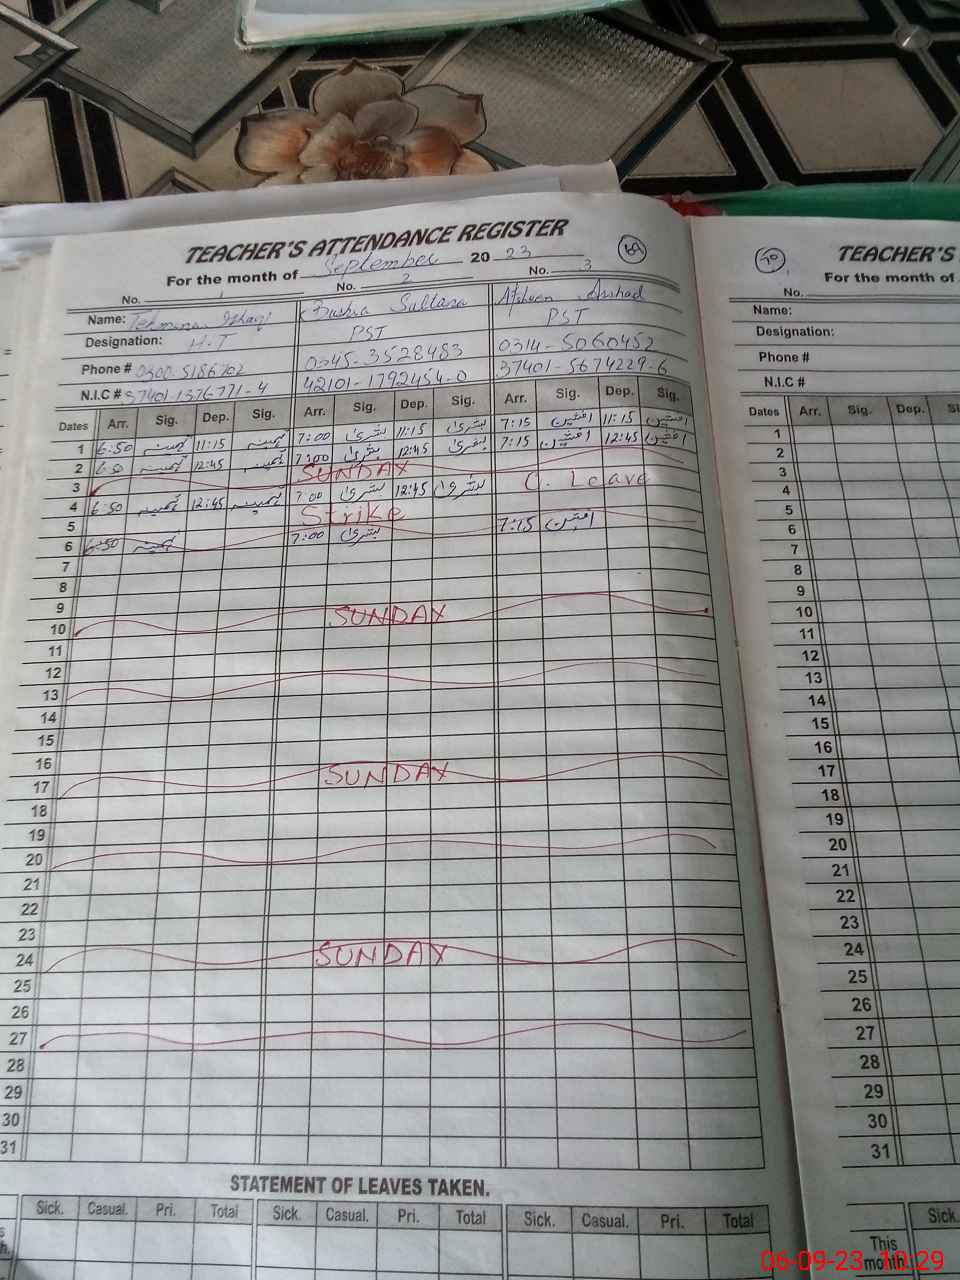 TEACHER'S ATTENDANCE REGISTER
For the month of September 20 23
69
No. 1 No. 2 No. 3
Name: Bushra Sultana Afsheen Arshad
Designation: H-T PST PST
Phone # 0300-5186702 0345-3528483 0314-5060452
N.I.C # 37401-1376771-4 42101-1792454-0 37401-5674229-6
Dates Arr. Sig. Dep. Sig. Arr. Sig. Dep. Sig. Arr. Sig. Dep. Sig.
1 6:50 تہمینہ 11:15 تہمینہ 7:00 بشریٰ 11:15 بشریٰ 7:15 افشین 11:15 افشین
2 6:50 تہمینہ 12:45 تہمینہ 7:00 بشریٰ 12:45 بشریٰ 7:15 افشین 12:45 افشین
3 SUNDAY
4 6:50 تہمینہ 12:45 تہمینہ 7:00 بشریٰ 12:45 بشریٰ C. Leave
5 Strike
6 6:50 تہمینہ 7:00 بشریٰ 7:15 افشین
7
8
9
10 SUNDAY
11
12
13
14
15
16
17 SUNDAY
18
19
20
21
22
23
24 SUNDAY
25
26
27
28
29
30
31
STATEMENT OF LEAVES TAKEN.
Sick. Casual. Pri. Total Sick. Casual. Pri. Total Sick. Casual. Pri. Total
70
TEACHER'S
For the month of
No.
Name:
Designation:
Phone #
N.I.C #
Dates Arr. Sig. Dep.
1
2
3
4
5
6
7
8
9
10
11
12
13
14
15
16
17
18
19
20
21
22
23
24
25
26
27
28
29
30
31
Sick.
This
month.
06-09-23 10:29